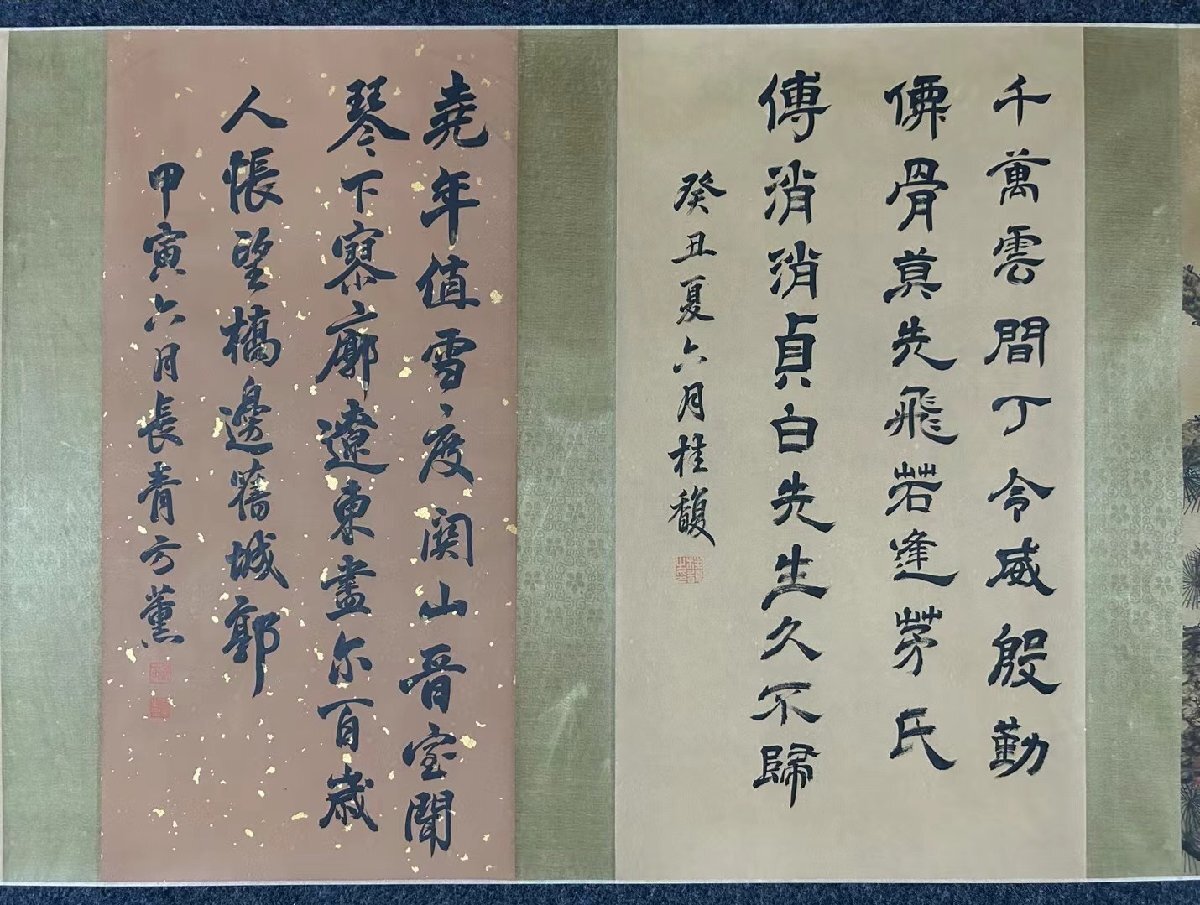 千萬雲間丁令威殷勤
僊骨莫先飛若逢茅氏
傅消消貞白先生久不歸
癸丑夏六月桂馥
堯年值雪度關山晉室聞
琴下寥廓遼東盡尔百歲
人悵望橋邊舊城郭
甲寅六月長青方薰